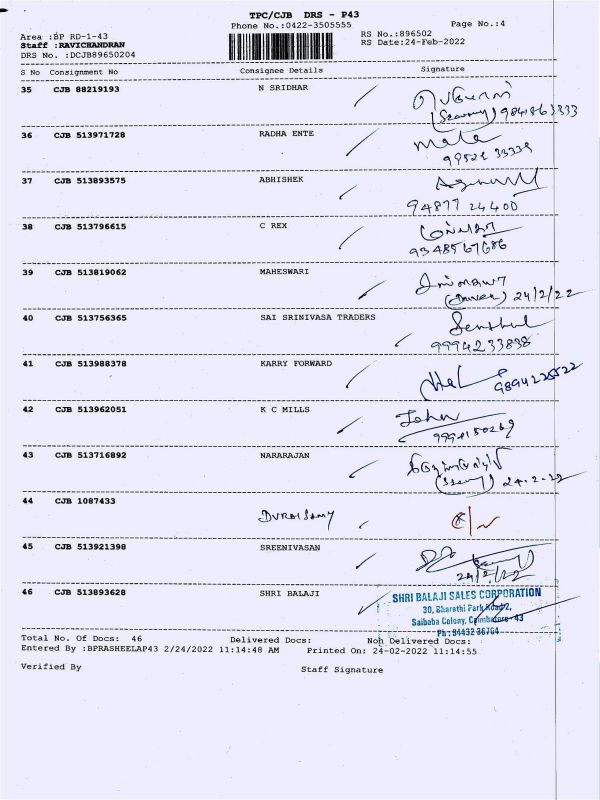 TPC/CJB DRS - P43
Phone No.:0422-3505555
Page No.:4
Area :BP RD-1-43
RS No.:896502
Staff :RAVICHANDRAN
RS Date:24-Feb-2022
DRS No. :DCJB89650204
S No Consignment No Consignee Details Signature
35 CJB 88219193 N SRIDHAR
36 CJB 513971728 RADHA ENTE
Mala
37 CJB 513893575 ABHISHEK
94877 24400
38 CJB 513796615 C REX
9348567686
39 CJB 513819062 MAHESWARI
(Driver) 24/2/22
40 CJB 513756365 SAI SRINIVASA TRADERS
Senthul
9994233838
41 CJB 513988378 KARRY FORWARD
42 CJB 513962051 K C MILLS
John
43 CJB 513716892 NARARAJAN
24-2-22
44 CJB 1087433
DURAISAMY
45 CJB 513921398 SREENIVASAN
24/2/22
46 CJB 513893628 SHRI BALAJI
SHRI BALAJI SALES CORPORATION
30, Bharathi Park Road 2,
Saibaba Colony, Coimbatore-43
Ph: 94432 36764
Total No. Of Docs: 46 Delivered Docs: Non Delivered Docs:
Entered By :BPRASHEELAP43 2/24/2022 11:14:48 AM Printed On: 24-02-2022 11:14:55
Verified By Staff Signature